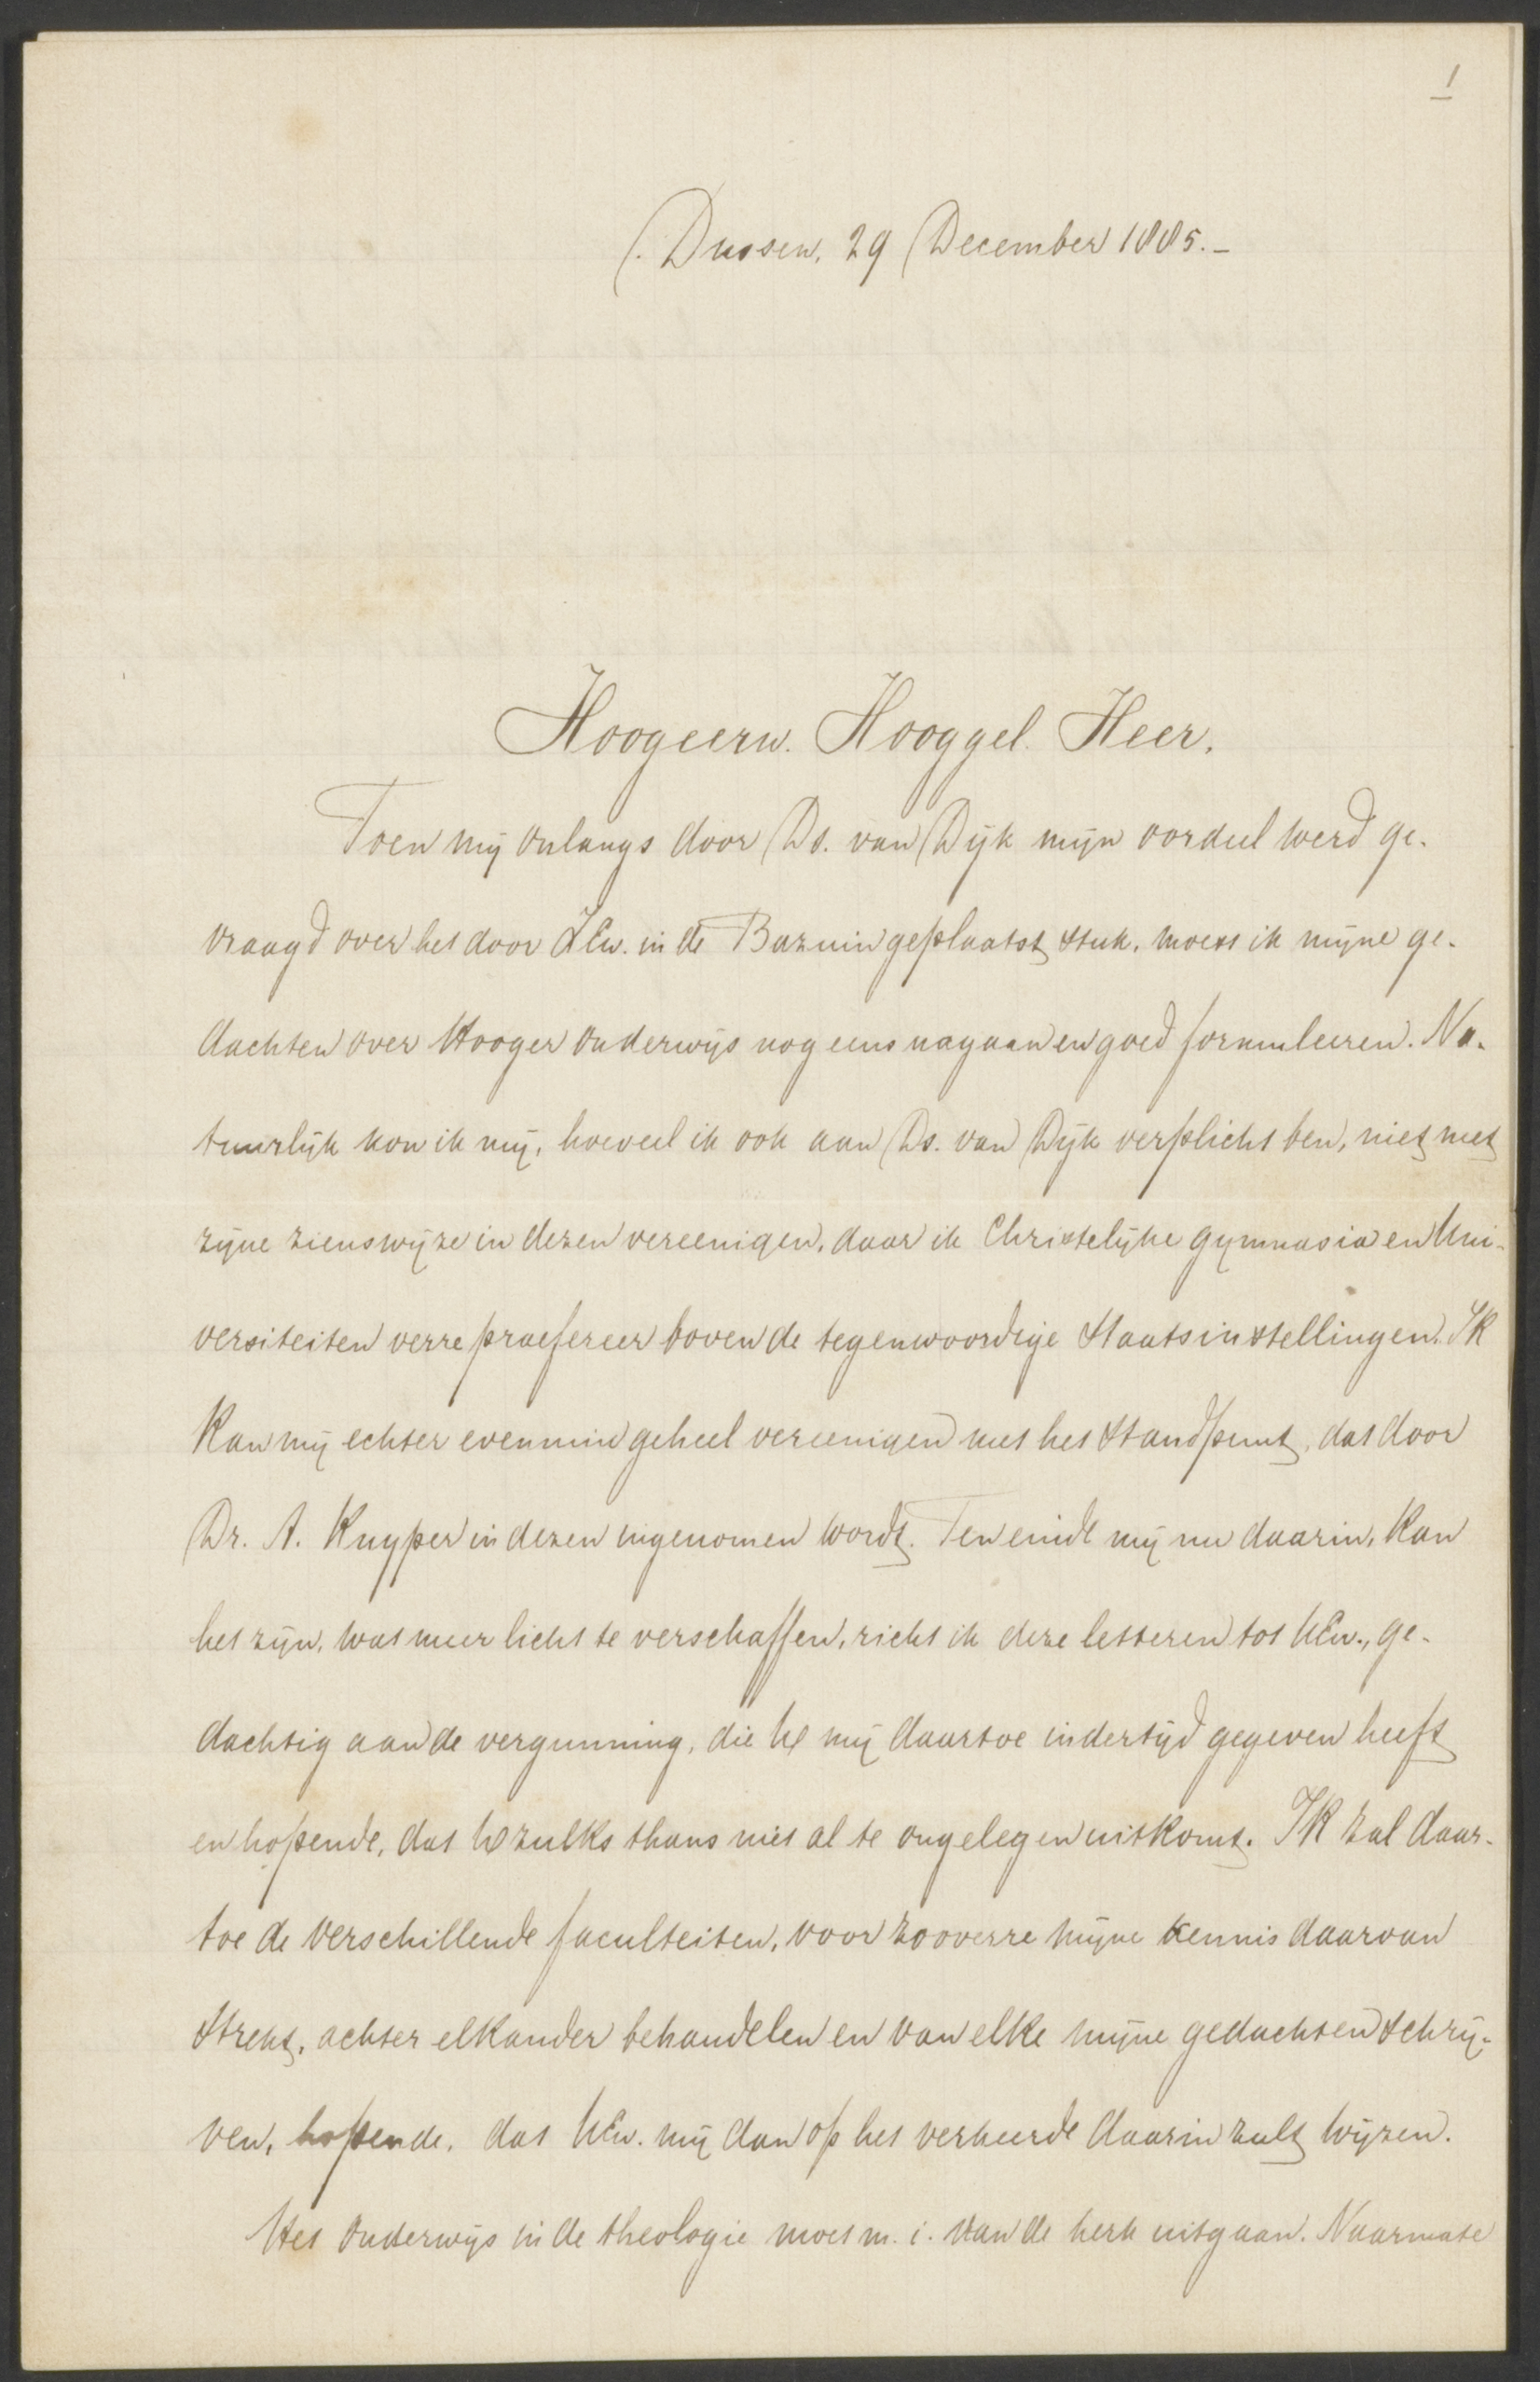 1
Dussen, 29 December 1885.-
Hoogeerw. Hooggel. Heer,
Toen mij onlangs door Ds. van Dijk mijn oordeel werd ge-
vraagd over het door ZEw. in de Bazuin geplaatst stuk, moest ik mijne ge-
dachten over Hooger onderwijs nog eens nagaan en goed formuleeren. Na-
tuurlijk kon ik mij, hoeveel ik ook aan Ds. van Dijk verplicht ben, niet met
zijne zienswijze in dezen vereenigen, daar ik Christelijke gymnasia en Uni-
versiteiten verre praefereer boven de tegenwoordige Staatsinstellingen. Ik
kan mij echter evenmin geheel vereenigen met het standpunt, dat door
Dr. A. Kuyper in dezen ingenomen wordt. Ten einde mij nu daarin, kan
het zijn, wat meer licht te verschaffen, richt ik deze letteren tot UEw., ge-
dachtig aan de vergunning, die UE mij daartoe indertijd gegeven heeft
en hopende, dat UE zulks thans niet al te ongelegen uitkomt. Ik zal daar-
toe de verschillende faculteiten, voor zooverre mijne kennis daarvan
strekt, achter elkander behandelen en van elke mijne gedachten schrij-
ven, hopende, dat UEw. mij dan op het verkeerde daarin zult wijzen.
Het onderwijs in de theologie moet m. i. van de kerk uitgaan. Naarmate